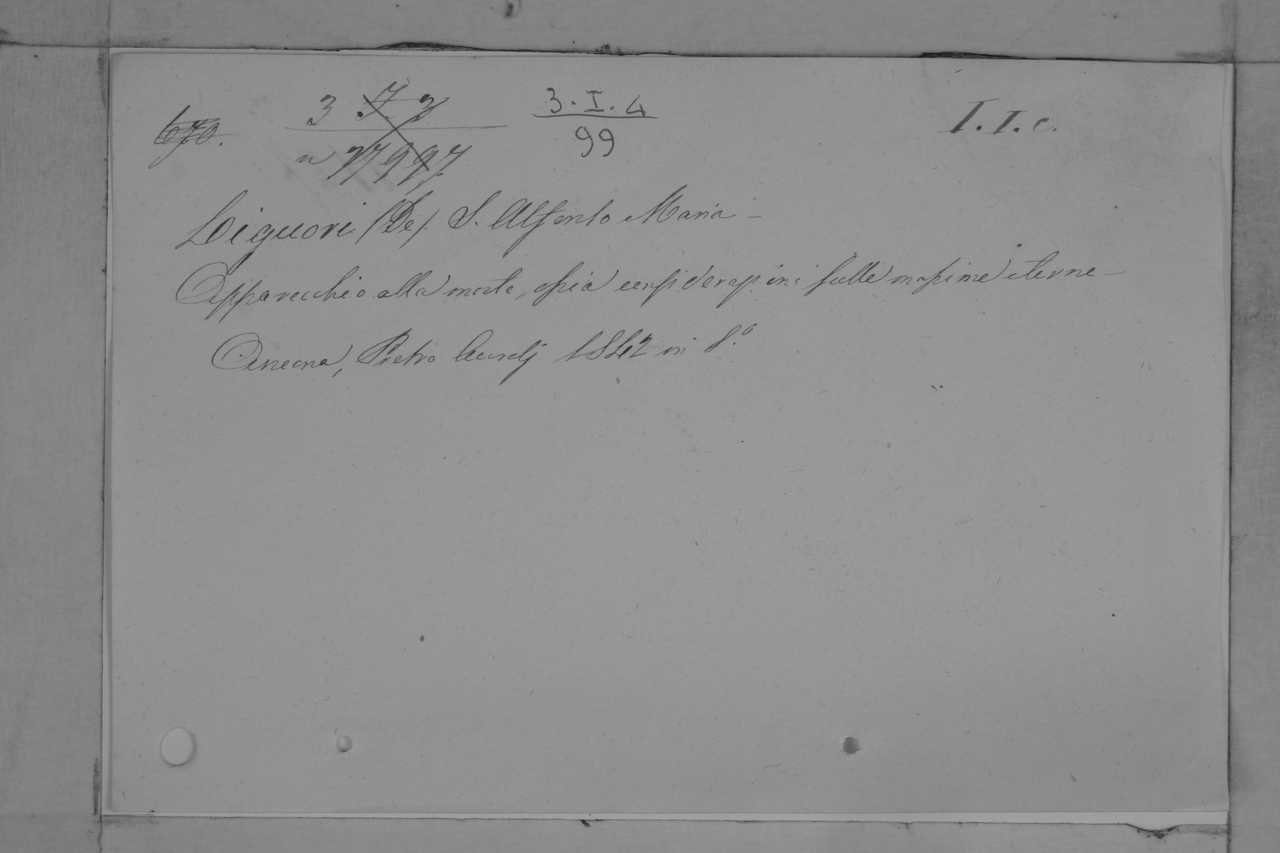 670. 3 7. 2 3. I. 4 I. I. c.
n 27997 99
Liguori (De) S. Alfonso Maria –
Apparecchio alla morte, ossia considerazioni sulle massime eterne –
Ancona, Pietro Aurelj 1842 in 8.º